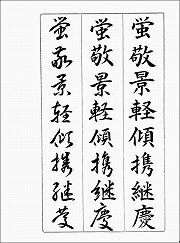 蛍敬景軽傾携継慶
蛍敬景軽傾携継慶
蛍敬景軽傾携継慶